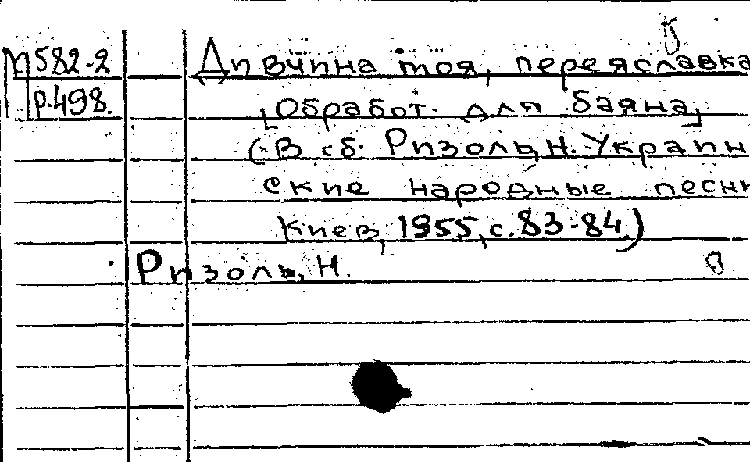 М582-2 Дивчина моя, переяславка
Р.498. [Обработ. для баяна]
(В сб. Ризоль, Н. Украин
ские народные песни
Киев, 1955, с. 83-84.)
Ризоль, Н.